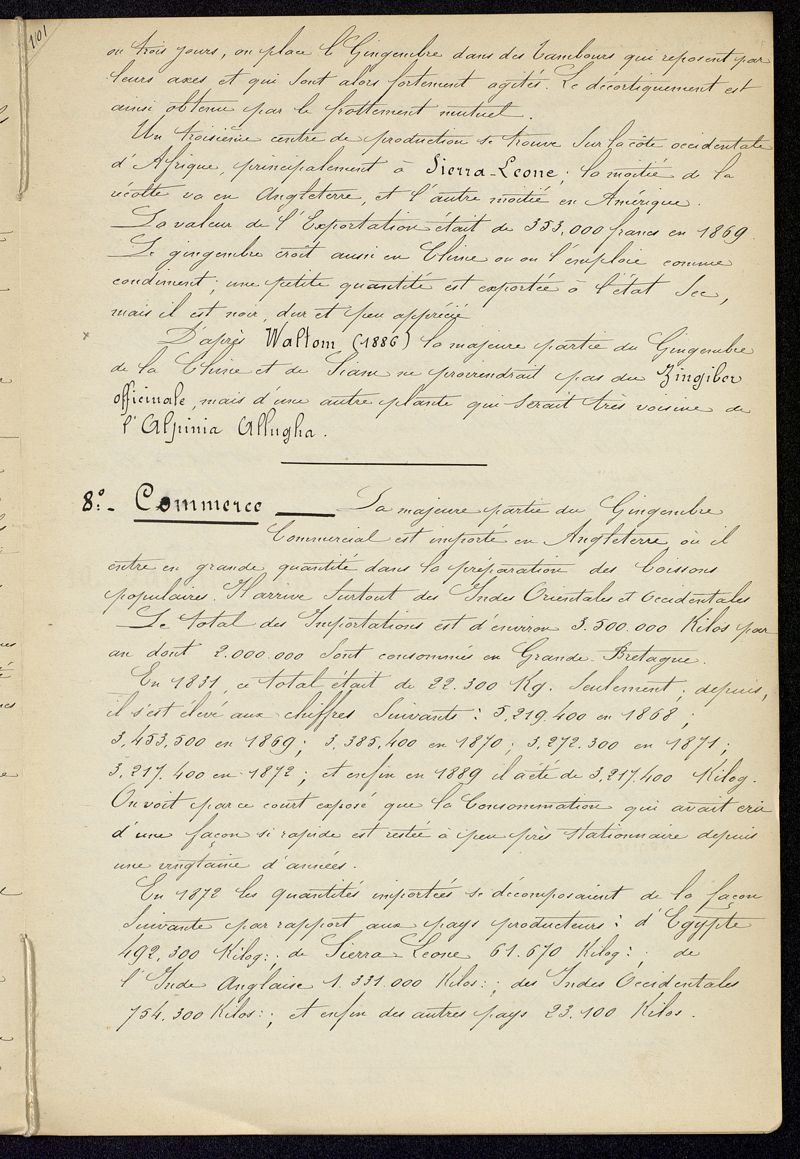 101
ou trois jours, on place le Gingembre dans des tambours qui reposent par
leurs axes et qui sont alors fortement agités. Le décortiquement est
ainsi obtenu par le frottement mutuel.
Un troisième centre de production se trouve sur la côte occidentale
d'Afrique, principalement à Sierra-Leone; la moitié de la
récolte va en Angleterre, et l'autre moitié en Amérique.
La valeur de l'Exportation était de 353.000 francs en 1869.
Le gingembre croît aussi en Chine ou on l'emploie comme
condiment; une petite quantité est exportée à l'état sec,
mais il est noir, dur et peu apprécié
D'après Waltom (1886) la majeure partie du Gingembre
de la Chine et de Siam ne proviendrait pas du Zingiber
officinale, mais d'une autre plante qui serait très voisine de
l'Alpinia Allugha.
8º.- Commerce — La majeure partie du Gingembre
Commercial est importé en Angleterre où il
entre en grande quantité dans la préparation des boissons
populaires. Il arrive surtout des Indes Orientales et Occidentales
Le total des Importations est d'environ 3.500.000 Kilos par
an dont 2.000.000 sont consommés en Grande-Bretagne.
En 1831, ce total était de 22.300 Kg. seulement; depuis,
il s'est élevé aux chiffres suivants: 5,219.400 en 1868;
3,453,500 en 1869; 3,385,400 en 1870; 3,272.300 en 1871;
3,217.400 en 1872; et enfin en 1889 il a été de 3,217.400 Kilog.
On voit par ce court exposé que la Consommation qui avait crû
d'une façon si rapide est restée à peu près stationnaire depuis
une vingtaine d'années.
En 1872 les quantités importées se décomposaient de la façon
suivante par rapport aux pays producteurs: d'Egypte
492,300 Kilog:; de Sierra Leone 61.670 Kilog:; de
l'Inde Anglaise 1.331.000 Kilos:; des Indes Occidentales
754.300 Kilos:; et enfin des autres pays 23.100 Kilos.